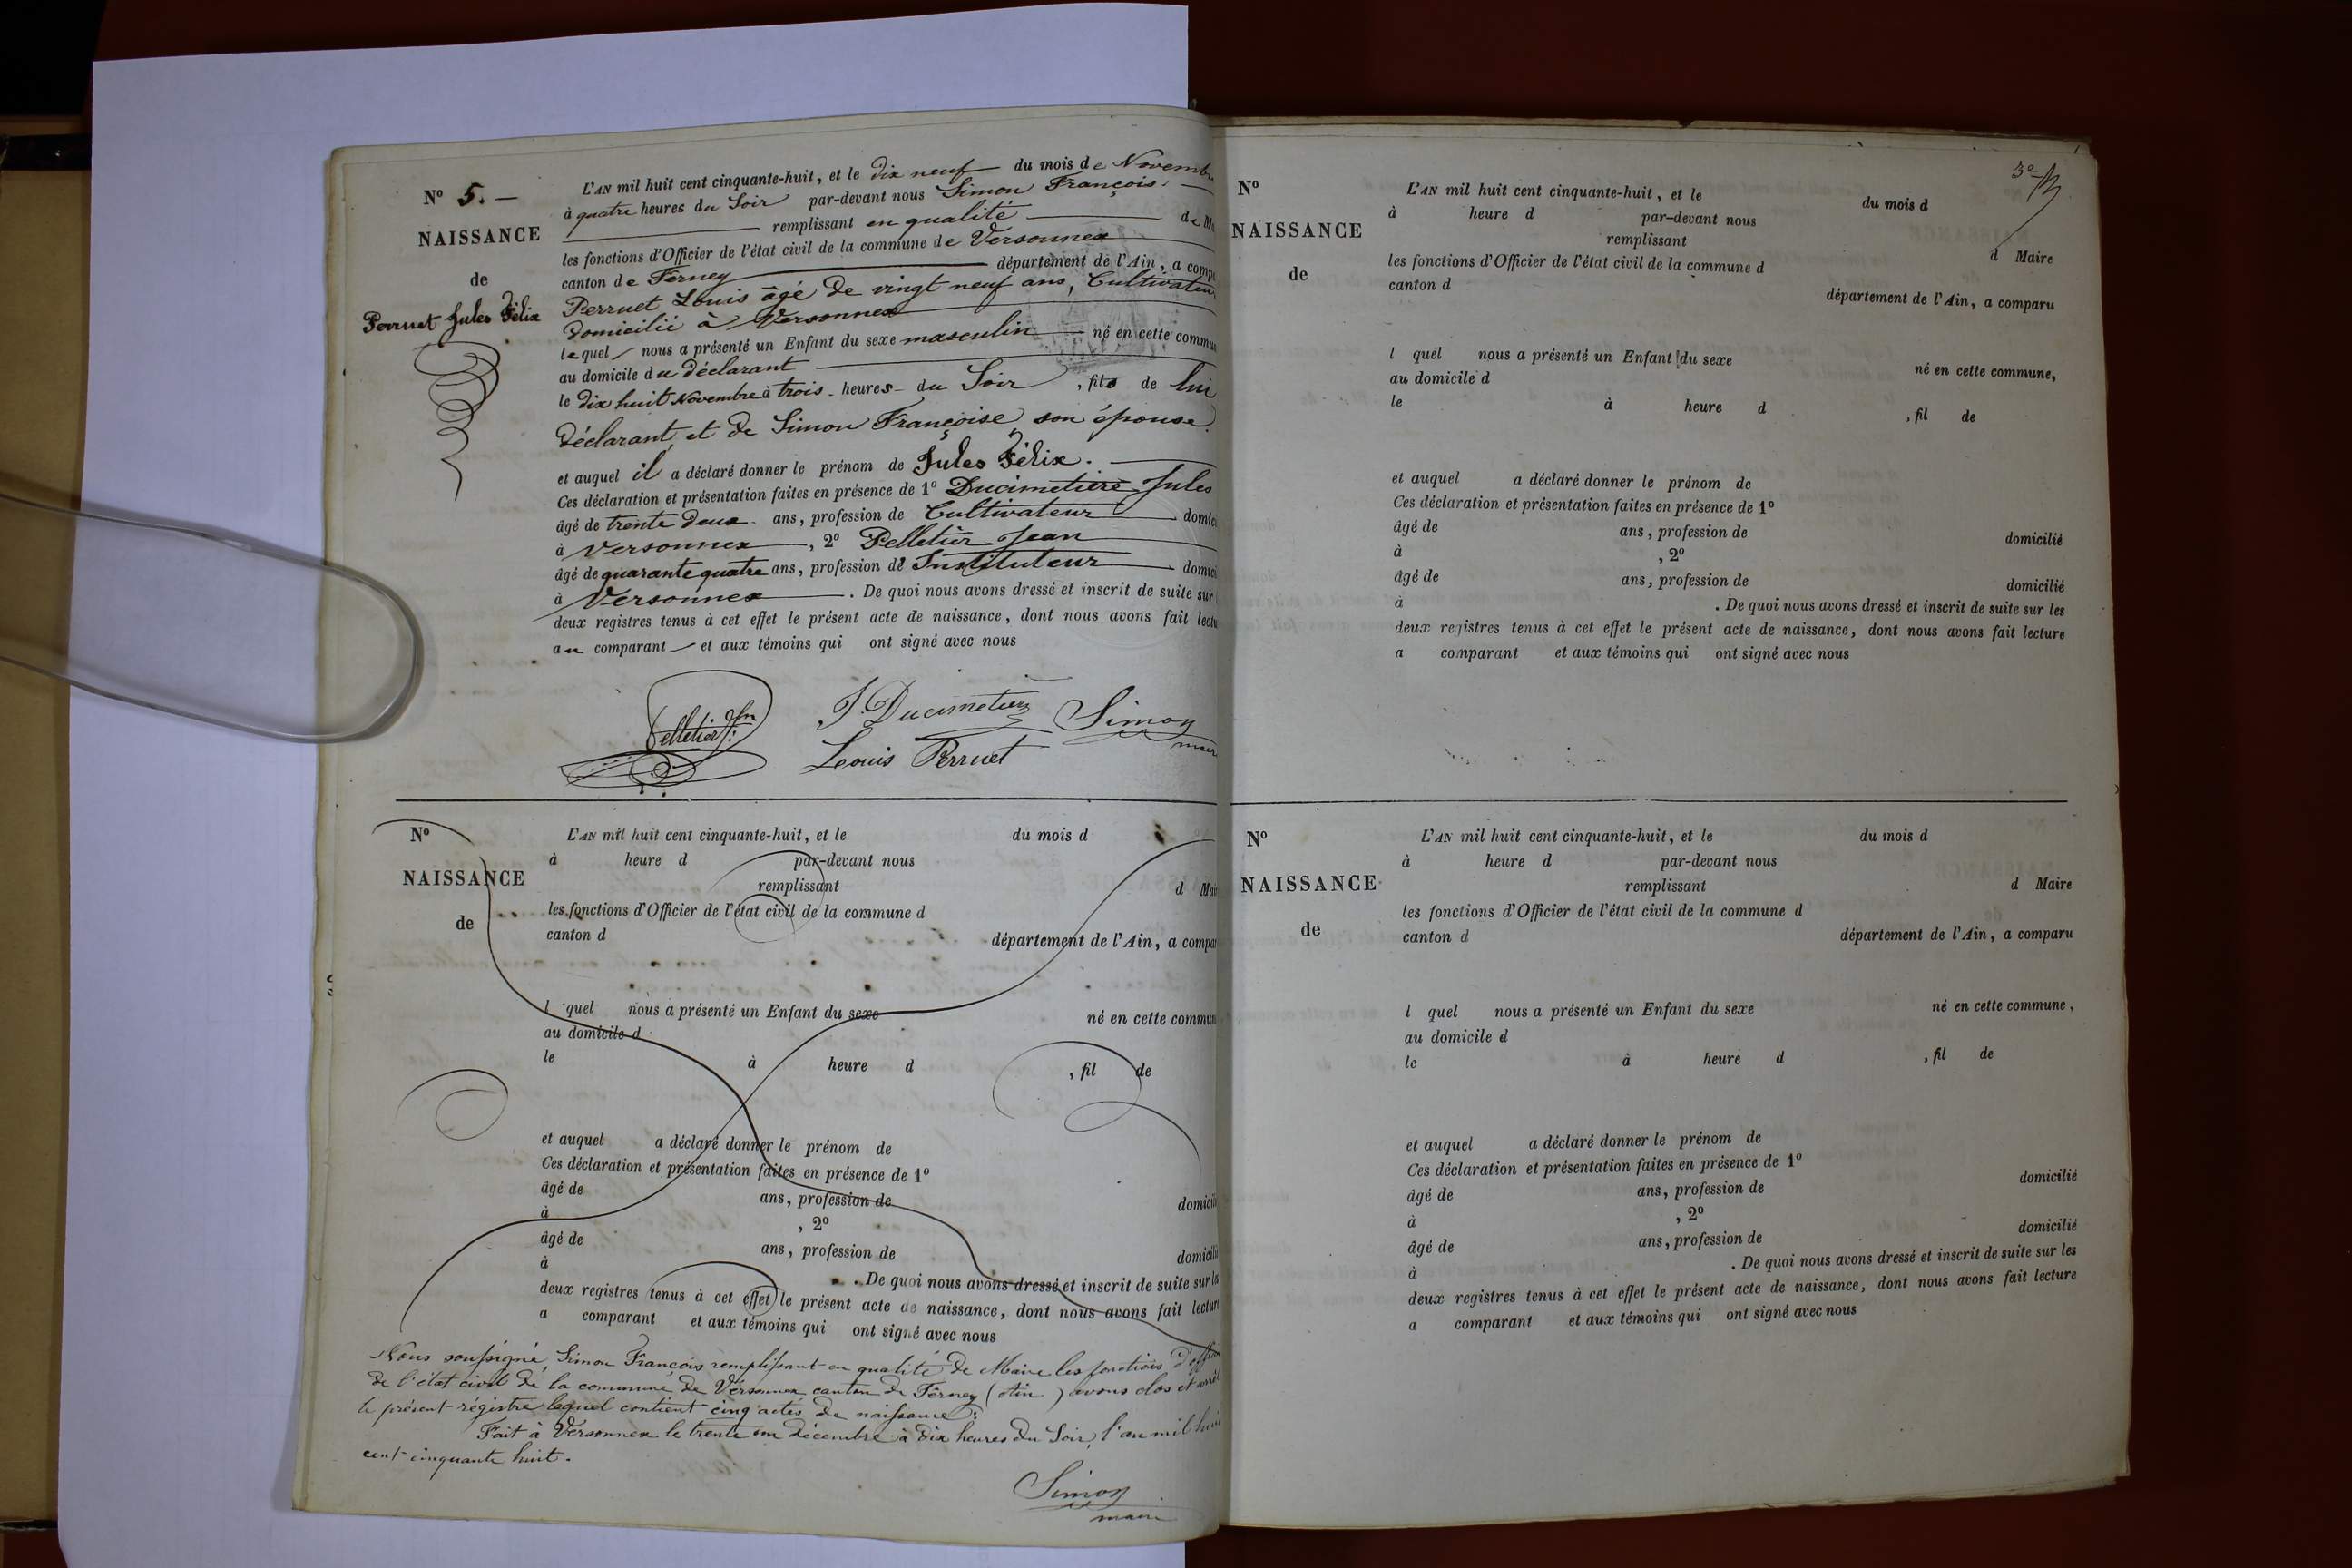 N° 5. —
NAISSANCE
de
Perruet Jules Félix
L'AN mil huit cent cinquante-huit, et le dix neuf du mois de Novembre
à quatre heures du Soir par-devant nous Simon François.
remplissant en qualité de
les fonctions d'Officier de l'état civil de la commune de Versonnex
canton de Ferney département de l'Ain, a
Perruet Louis âgé de vingt neuf ans, Cultivateur
domicilié à Versonnex
lequel nous a présenté un Enfant du sexe masculin né en cette
au domicile du déclarant
le dix huit Novembre à trois heures du Soir, fils de lui
déclarant, et de Simon Françoise son épouse.
et auquel il a déclaré donner le prénom de Jules Félix.
Ces déclaration et présentation faites en présence de 1° Ducimetière Jules
âgé de trente deux ans, profession de Cultivateur
à Versonnex, 2° Pelletier Jean
âgé de quarante quatre ans, profession de Instituteur
à Versonnex. De quoi nous avons dressé et inscrit de suite sur
deux registres tenus à cet effet le présent acte de naissance, dont nous avons fait
au comparant et aux témoins qui ont signé avec nous
Pelletier Jn J. Ducimetière Simon
Louis Perruet maire
N°
NAISSANCE
de
L'AN mil huit cent cinquante-huit, et le du mois d
à heure d par-devant nous
remplissant d
les fonctions d'Officier de l'état civil de la commune d
canton d département de l'Ain, a
l quel nous a présenté un Enfant du sexe né en cette
au domicile d
le à heure d , fil de
et auquel a déclaré donner le prénom de
Ces déclaration et présentation faites en présence de 1°
âgé de ans, profession de
à , 2°
âgé de ans, profession de
à . De quoi nous avons dressé et inscrit de suite sur
deux registres tenus à cet effet le présent acte de naissance, dont nous avons fait
a comparant et aux témoins qui ont signé avec nous
Nous soussigné, Simon François remplissant en qualité de Maire les fonctions
de l'état civil de la commune de Versonnex canton de Ferney (Ain) avons clos et
le présent régistre lequel contient cinq actes de naissance.
Fait à Versonnex le trente un décembre à dix heures du Soir, l'an mil huit
cent cinquante huit.
Simon
maire
N°
NAISSANCE
de
L'AN mil huit cent cinquante-huit, et le du mois d
à heure d par-devant nous
remplissant d Maire
les fonctions d'Officier de l'état civil de la commune d
canton d département de l'Ain, a comparu
l quel nous a présenté un Enfant du sexe né en cette commune,
au domicile d
le à heure d , fil de
et auquel a déclaré donner le prénom de
Ces déclaration et présentation faites en présence de 1°
âgé de ans, profession de domicilié
à , 2°
âgé de ans, profession de domicilié
à . De quoi nous avons dressé et inscrit de suite sur les
deux registres tenus à cet effet le présent acte de naissance, dont nous avons fait lecture
a comparant et aux témoins qui ont signé avec nous
N°
NAISSANCE
de
L'AN mil huit cent cinquante-huit, et le du mois d
à heure d par-devant nous
remplissant d Maire
les fonctions d'Officier de l'état civil de la commune d
canton d département de l'Ain, a comparu
l quel nous a présenté un Enfant du sexe né en cette commune,
au domicile d
le à heure d , fil de
et auquel a déclaré donner le prénom de
Ces déclaration et présentation faites en présence de 1°
âgé de ans, profession de domicilié
à , 2°
âgé de ans, profession de domicilié
à . De quoi nous avons dressé et inscrit de suite sur les
deux registres tenus à cet effet le présent acte de naissance, dont nous avons fait lecture
a comparant et aux témoins qui ont signé avec nous